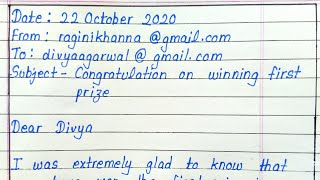 Date: 22 October 2020
From: raginikhanna @gmail.com
To: divyaagarwal @ gmail.com
Subject- Congratulation on winning first
prize
Dear Divya
I was extremely glad to know that